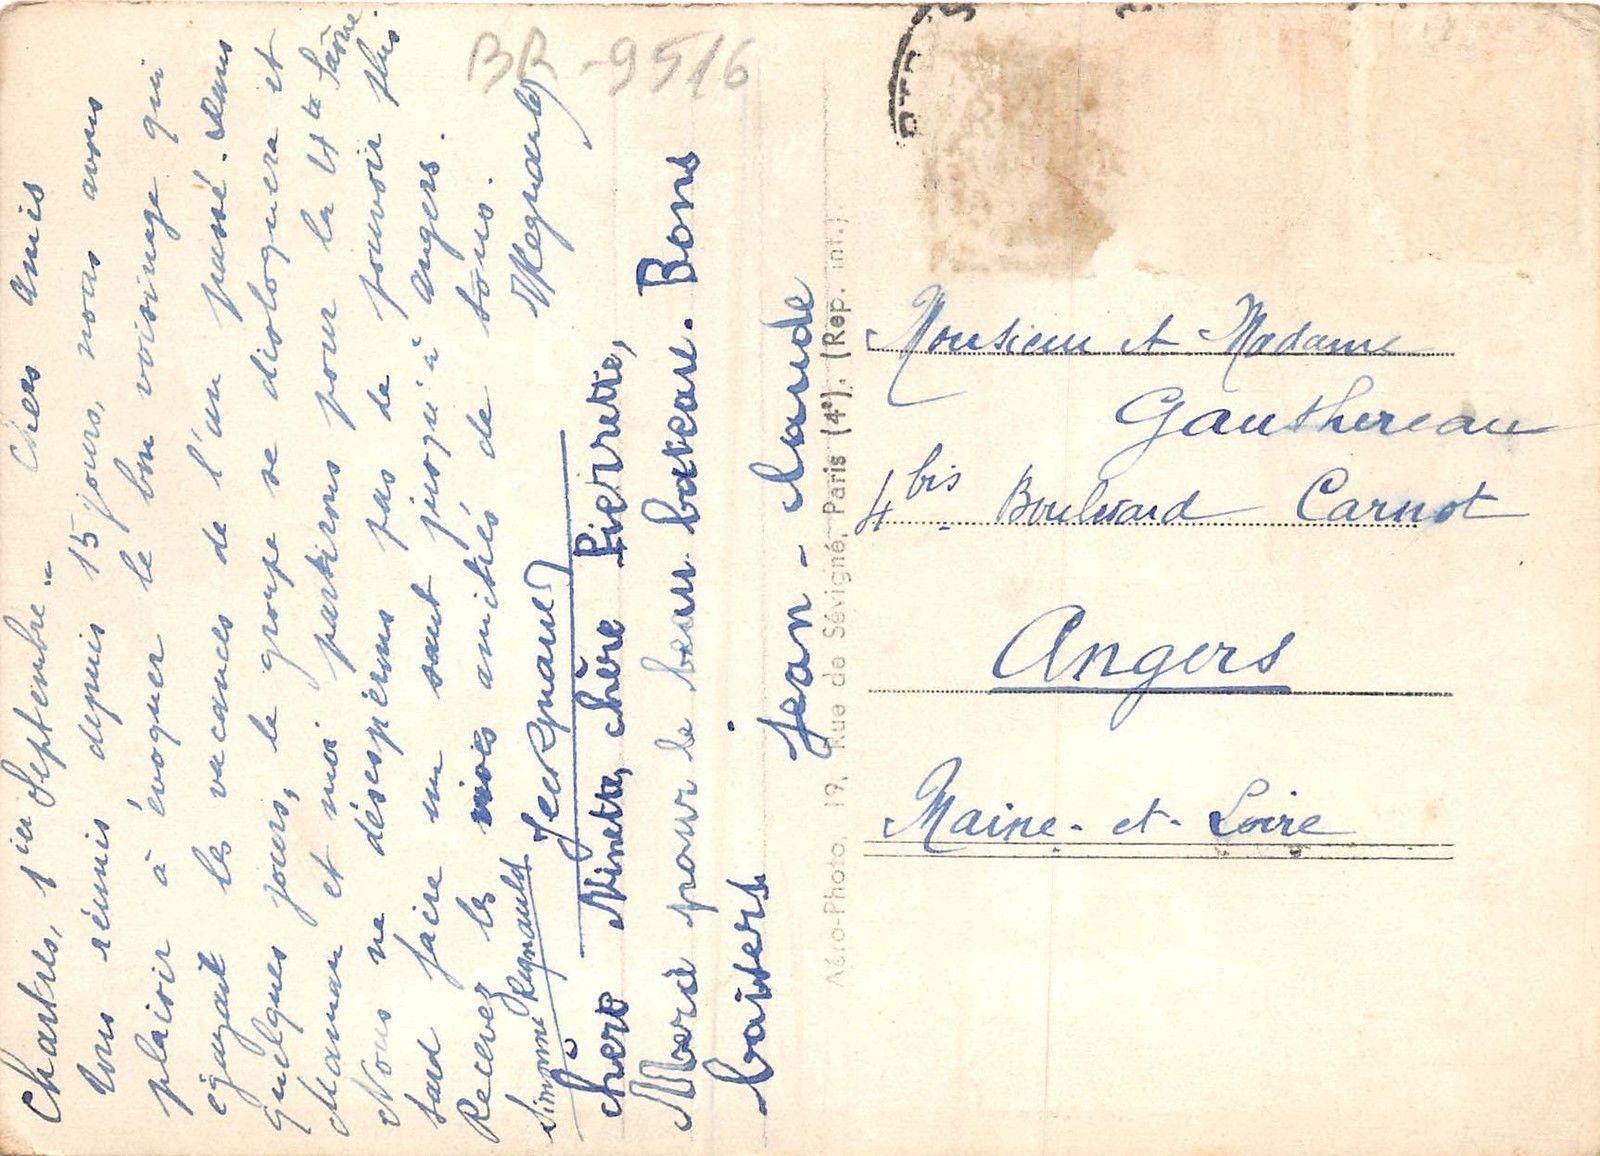 Chartres, 1er Septembre.. Chers Amis
Tous réunis depuis 15 jours, nous avons
plaisir à évoquer le bon voisinage qui
égayait les vacances de l'an passé. Dans
quelques jours, le groupe se disloquera et
Maman et moi partirons pour la Hte Saône.
Nous ne désespérons pas de pouvoir plus
tard faire un saut jusqu'à Angers.
Recevez les amitiés de tous.
Simonne Regnauld
chère Ninette, chère Pierrette,
Merci pour le beau bateau. Bons
baisers.
Jean-Claude
BR-9516
Aéro-Photo, 19, Rue de Sévigné, Paris (4e). (Rep. int.).
Monsieur et Madame
Gauthereau
4 bis Boulevard Carnot
Angers
Maine-et-Loire